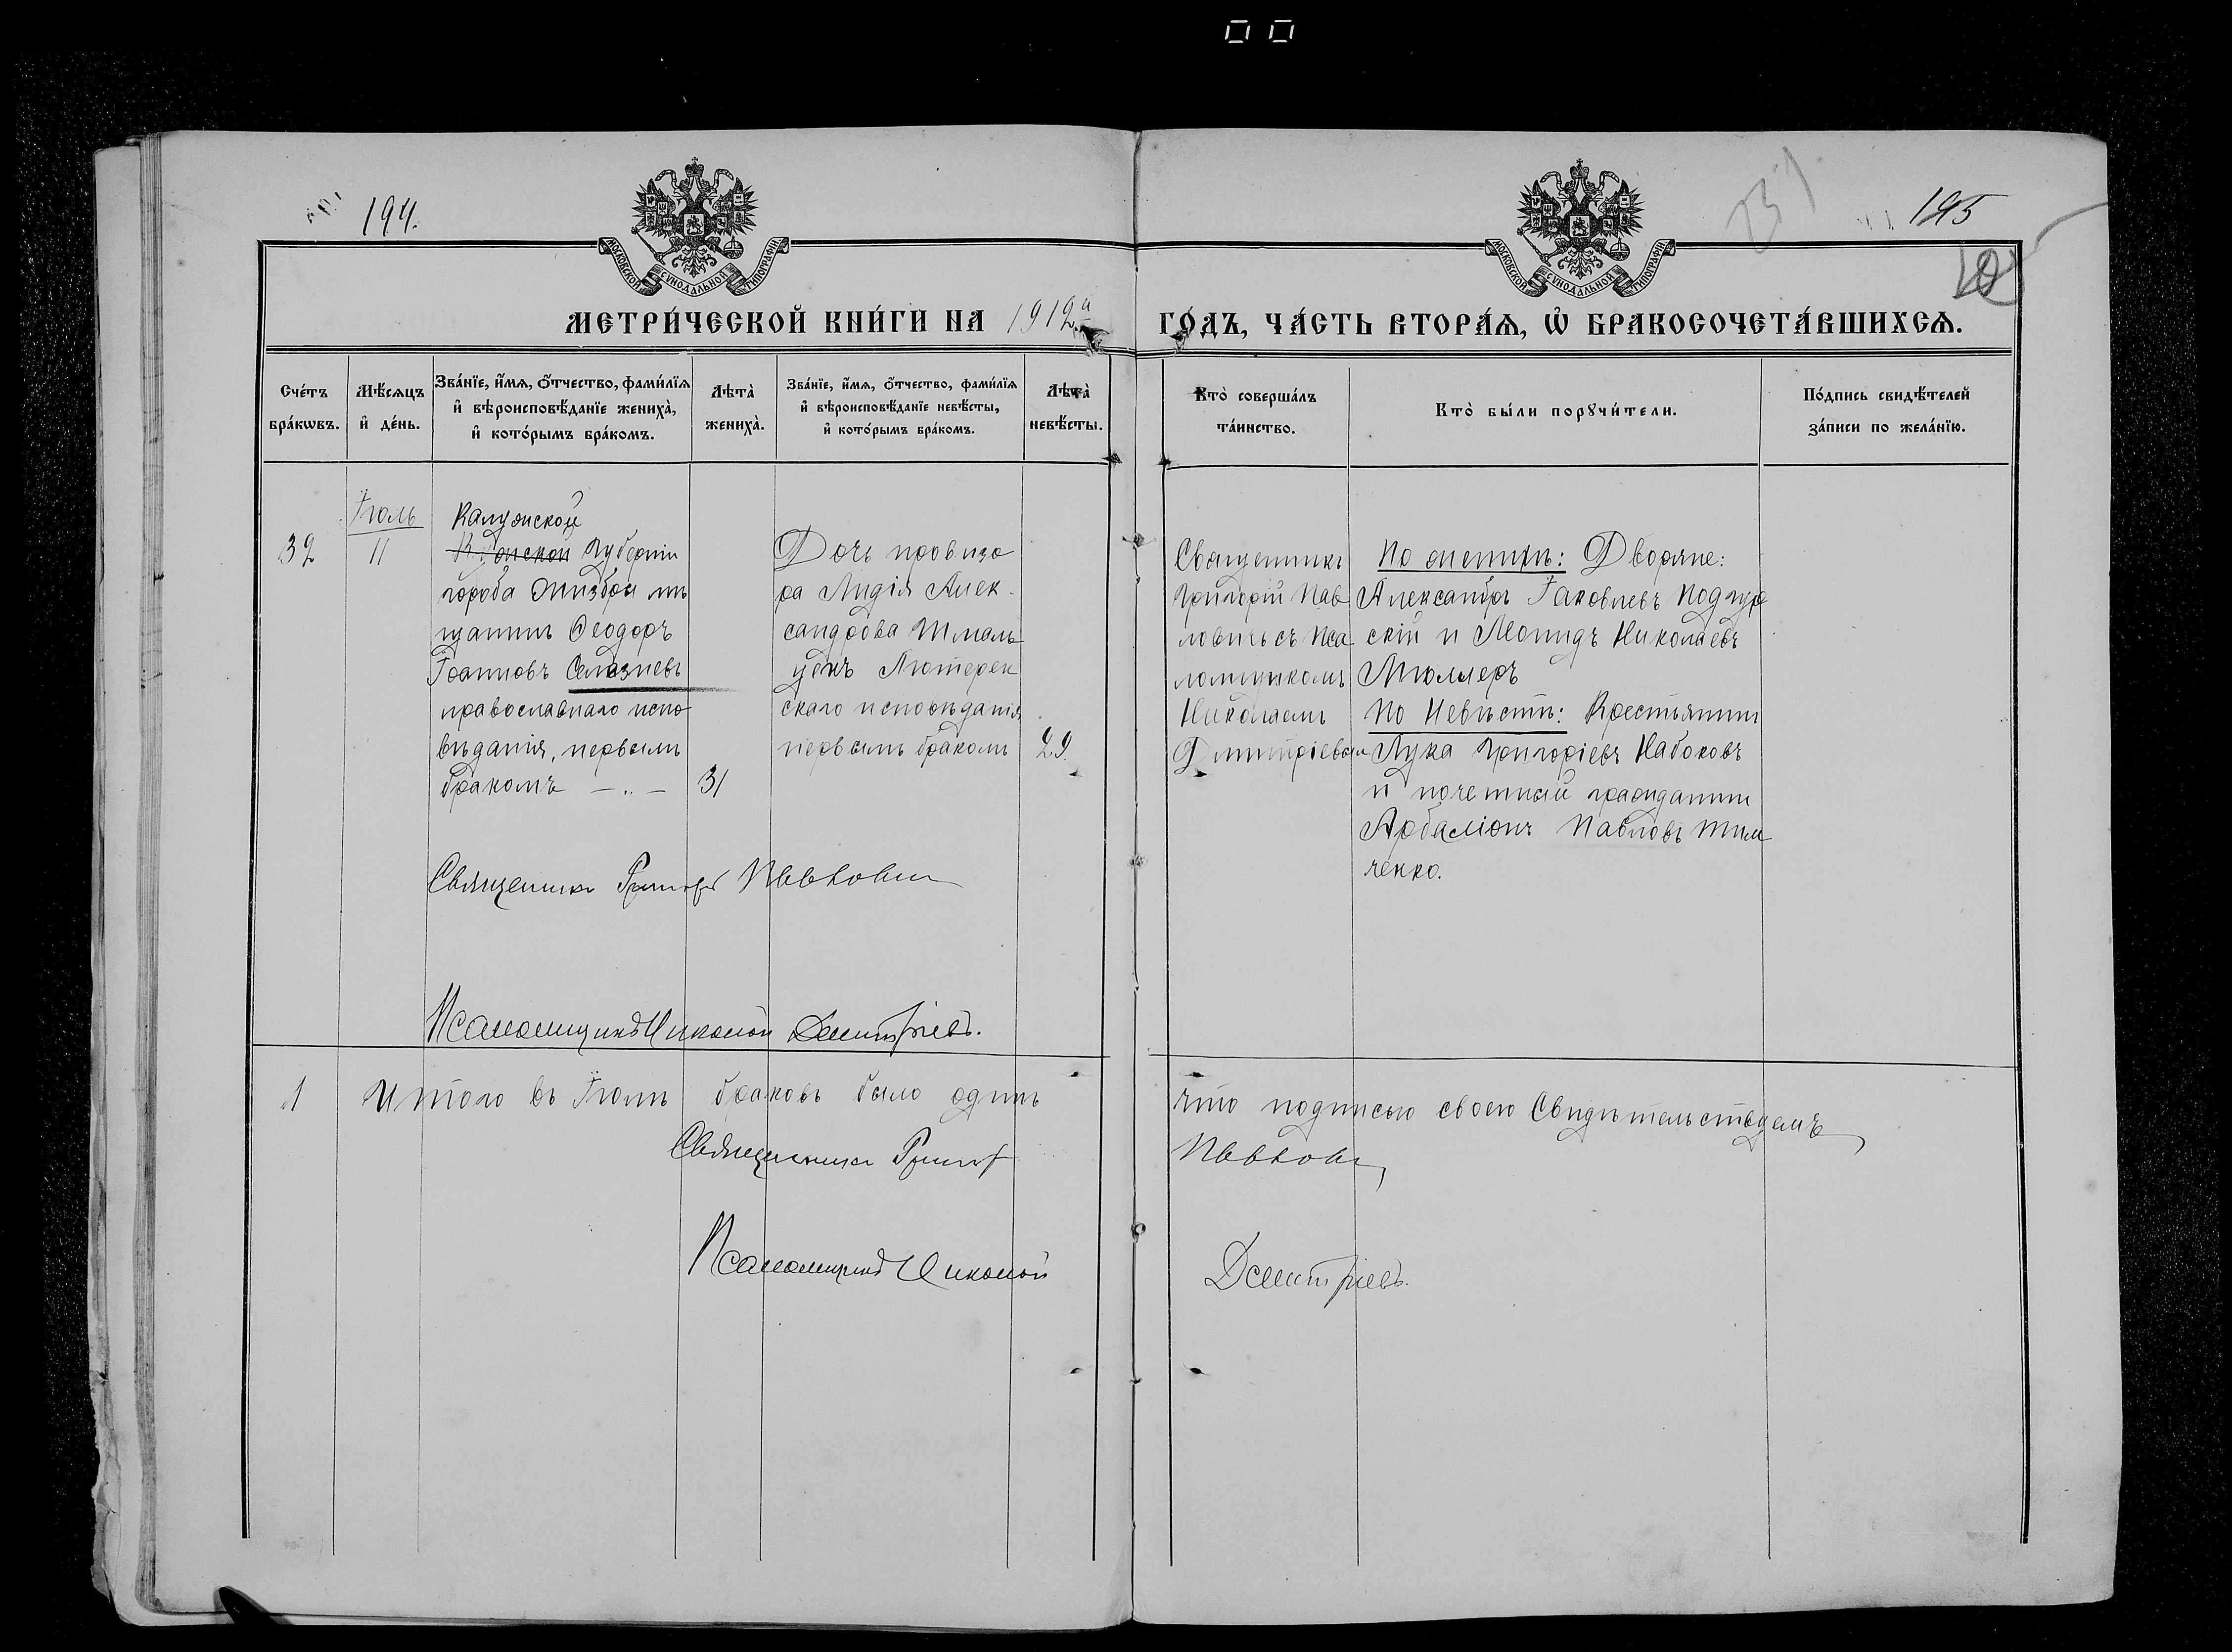 194.
195
МОСКОВСКОЙ СѴНОДАЛЬНОЙ ТИПОГРАФІИ
МОСКОВСКОЙ СѴНОДАЛЬНОЙ ТИПОГРАФІИ
МЕТРИ́ЧЕСКОЙ КНИ́ГИ НА 1912й
ГО́ДЪ, ЧА́СТЬ ВТОРА́Ѧ, Ѡ҆ БРАКОСОЧЕТА́ВШИХСѦ.
Сче́тъ
бра́кѡвъ.
Мѣ́сѧцъ
и҆ де́нь.
Зва́нїе, и҆́мѧ, ѻ҆́тчество, фами́лїѧ
и҆ вѣроисповѣ́данїе жениха̀,
и҆ кото́рымъ бра́комъ.
Лѣта̀
жениха̀.
Зва́нїе, и҆́мѧ, ѻ҆́тчество, фами́лїѧ
и҆ вѣроисповѣ́данїе невѣ́сты,
и҆ кото́рымъ бра́комъ.
Лѣта̀
невѣ́сты.
Кто̀ соверша́лъ
та́инство.
Кто̀ бы́ли порꙋчи́тели.
По́дпись свидѣ́телей
за́писи по жела́нїю.
32
Іюль
11
Калужской
губерніи
города Жиздры мѣ
щанинъ Ѳеодоръ
Іоанновъ Селезневъ
православнаго испо
вѣданія, первымъ
бракомъ — „ —
31
Дочь провизо
ра Лидія Алек-
сандрова Шмаль
цекъ Лютеран
скаго исповѣданія
первымъ бракомъ
29.
Священникъ
Григорій Пав
ловичъ съ Пса
ломщикомъ
Николаемъ
Дмитріевымъ
По женихѣ: Дворяне:
Александръ Іаковлевъ Подгур
скій и Леонидъ Николаевъ
Мюллеръ
По Невѣстѣ: Крестьянинъ
Лука Григоріевъ Набоковъ
и почетный гражданинъ
Павловъ Тим
ченко.
Священникъ Григорій
Псаломщикъ Николай Дмитріевъ.
1
Итого въ Іюлѣ браковъ было одинъ
что подписью своею Свидѣтельствуемъ
Священникъ Григорій
Псаломщикъ Николай
Дмитріевъ.